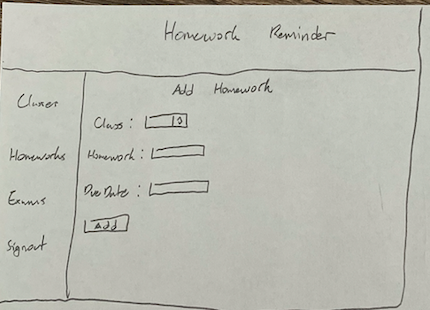 Homework Reminder
Classes
Homeworks
Exams
Signout
Add Homework
Class:
Homework:
Due Date:
Add